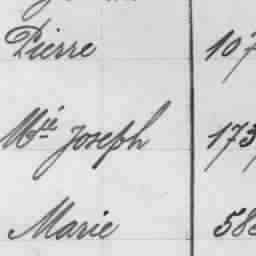 Pierre 107
Mié Joseph 173
Marie 58